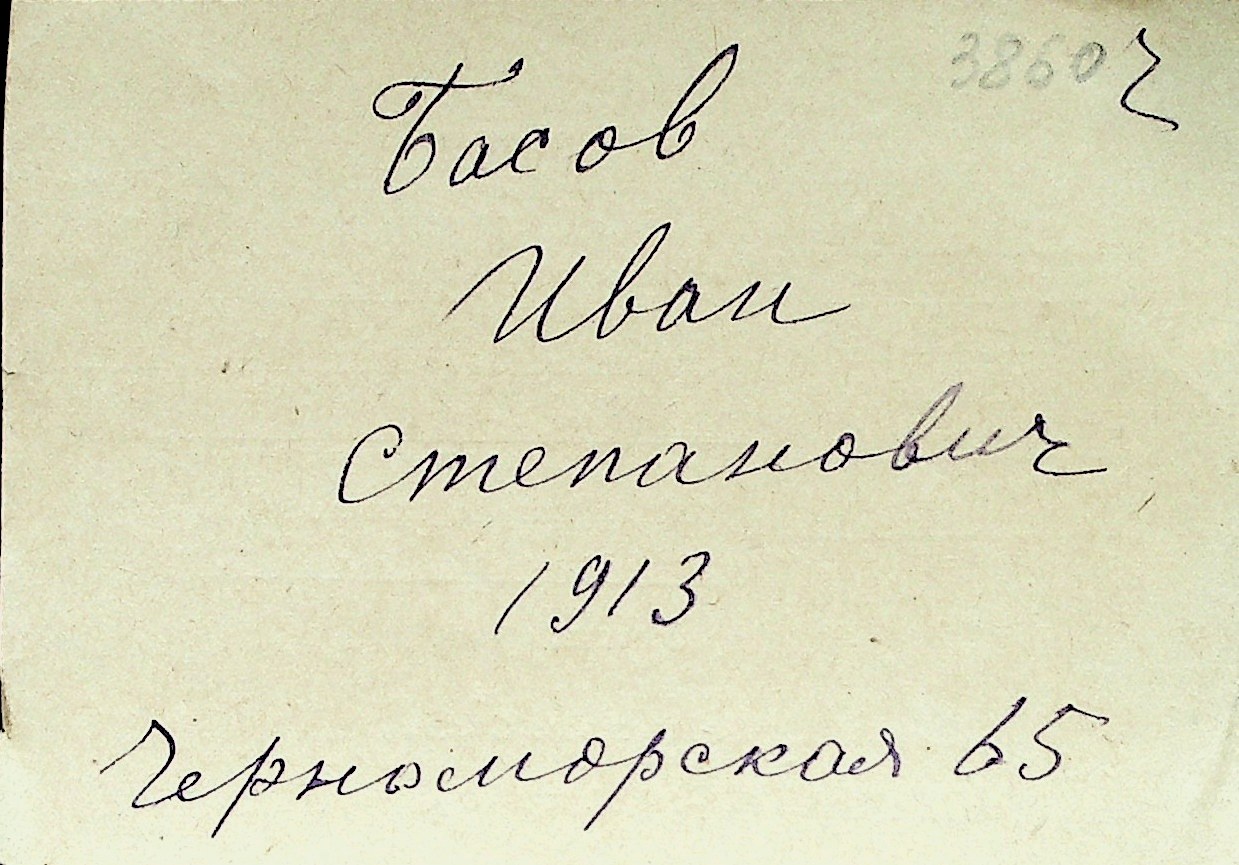 3860 ч
Басов
Иван
Степанович
1913
Черноморская 65